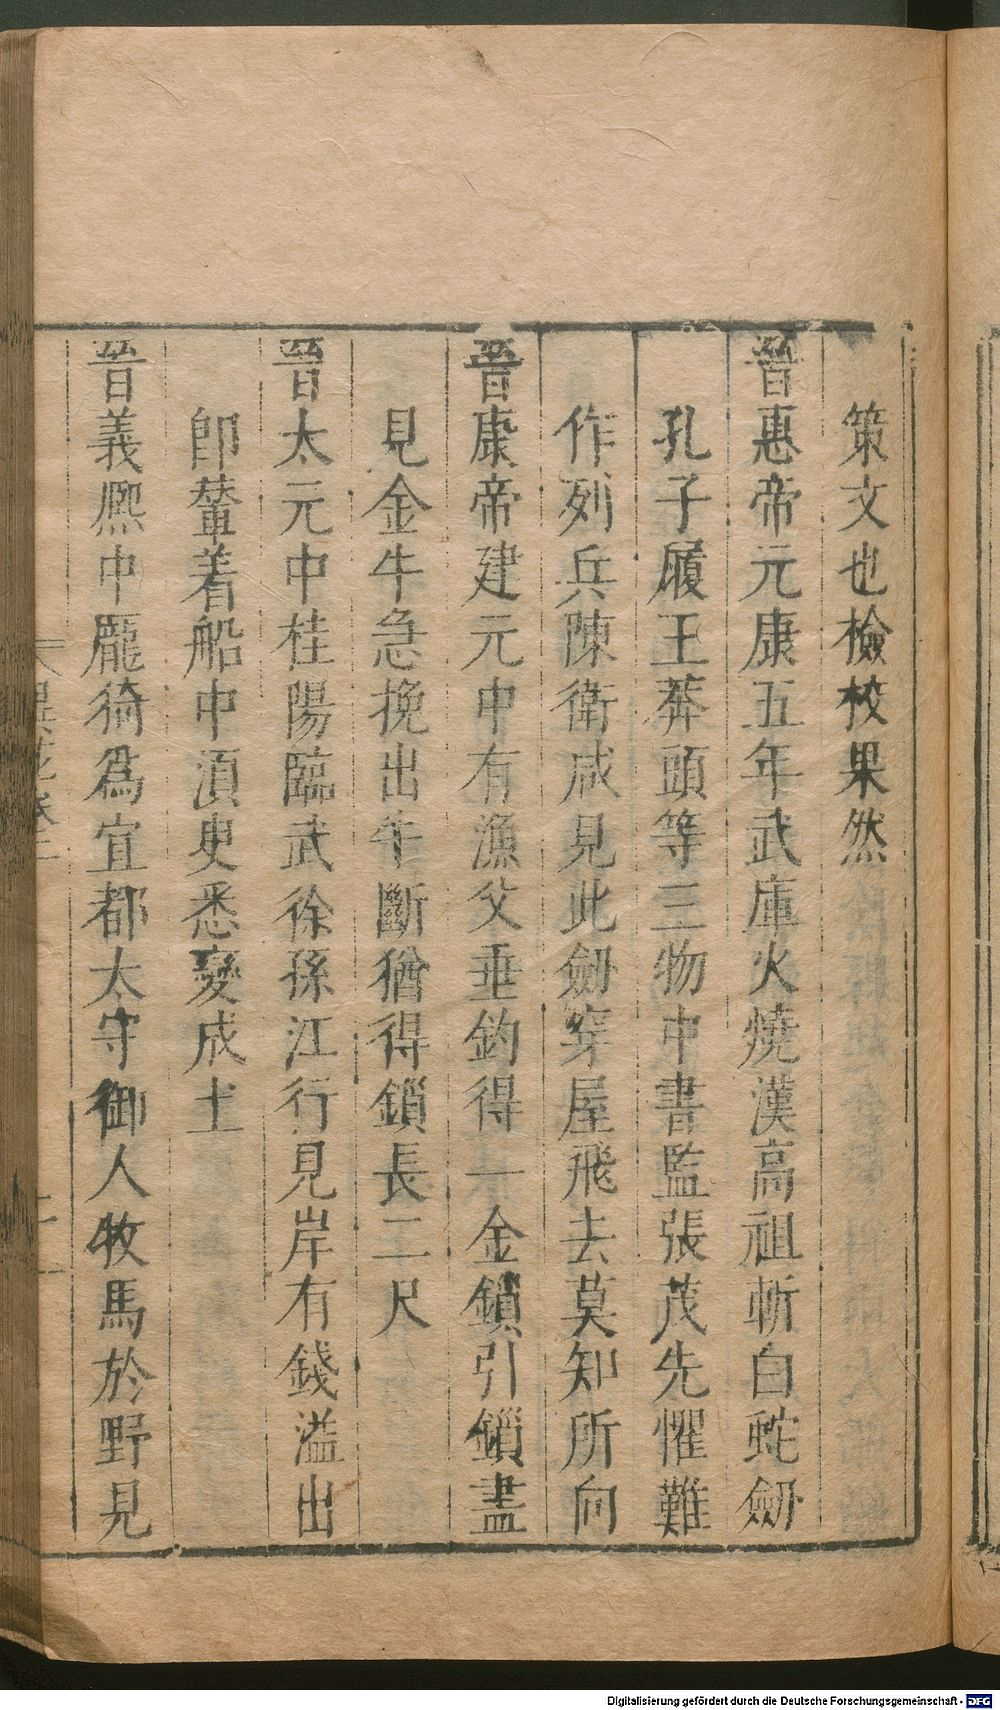 策文也檢校果然
晉惠帝元康五年武庫火燒漢高祖斬白蛇劒
孔子履王莽頭等三物中書監張茂先懼難
作列兵陳衛咸見此劒穿屋飛去莫知所向
晉康帝建元中有漁父垂釣得一金鎖引鎖盡
見金牛急挽出牛斷猶得鎖長二尺
晉太元中桂陽臨武徐孫江行見岸有錢溢出
即輦着船中湏臾悉變成土
晉義熈中龐猗爲宜都太守御人牧馬於野見
Digitalisierung gefördert durch die Deutsche Forschungsgemeinschaft - DFG